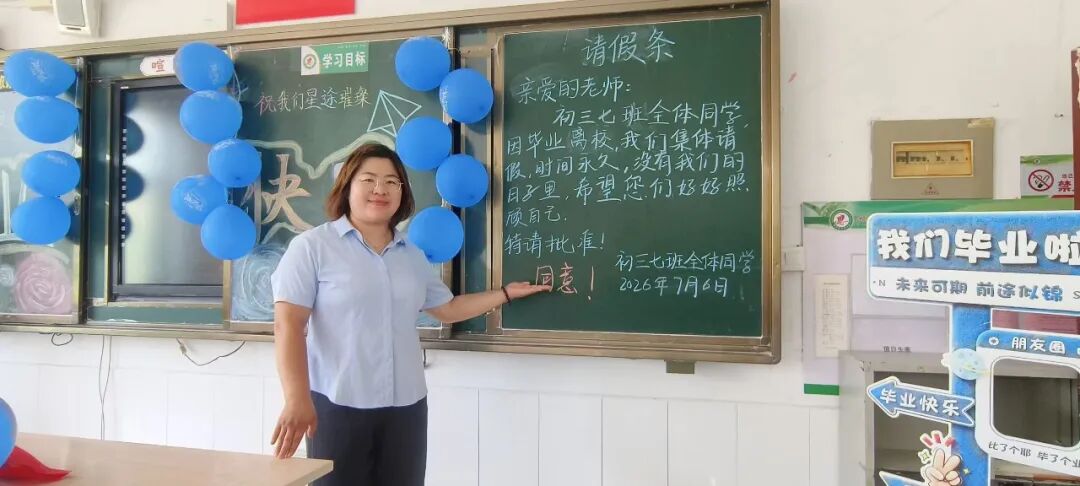 喧
学习目标
祝我们星途璀璨
快
请假条
亲爱的老师：
初三七班全体同学，
因毕业离校，我们集体请
假，时间永久，没有我们的
日子里，希望您们好好照
顾自己.
特请批准！
同意！
初三七班全体同学
2026年7月6日
禁
我们毕业啦
·N 未来可期 前途似锦 S
朋友圈
毕业快乐
比了个耶 毕了个业